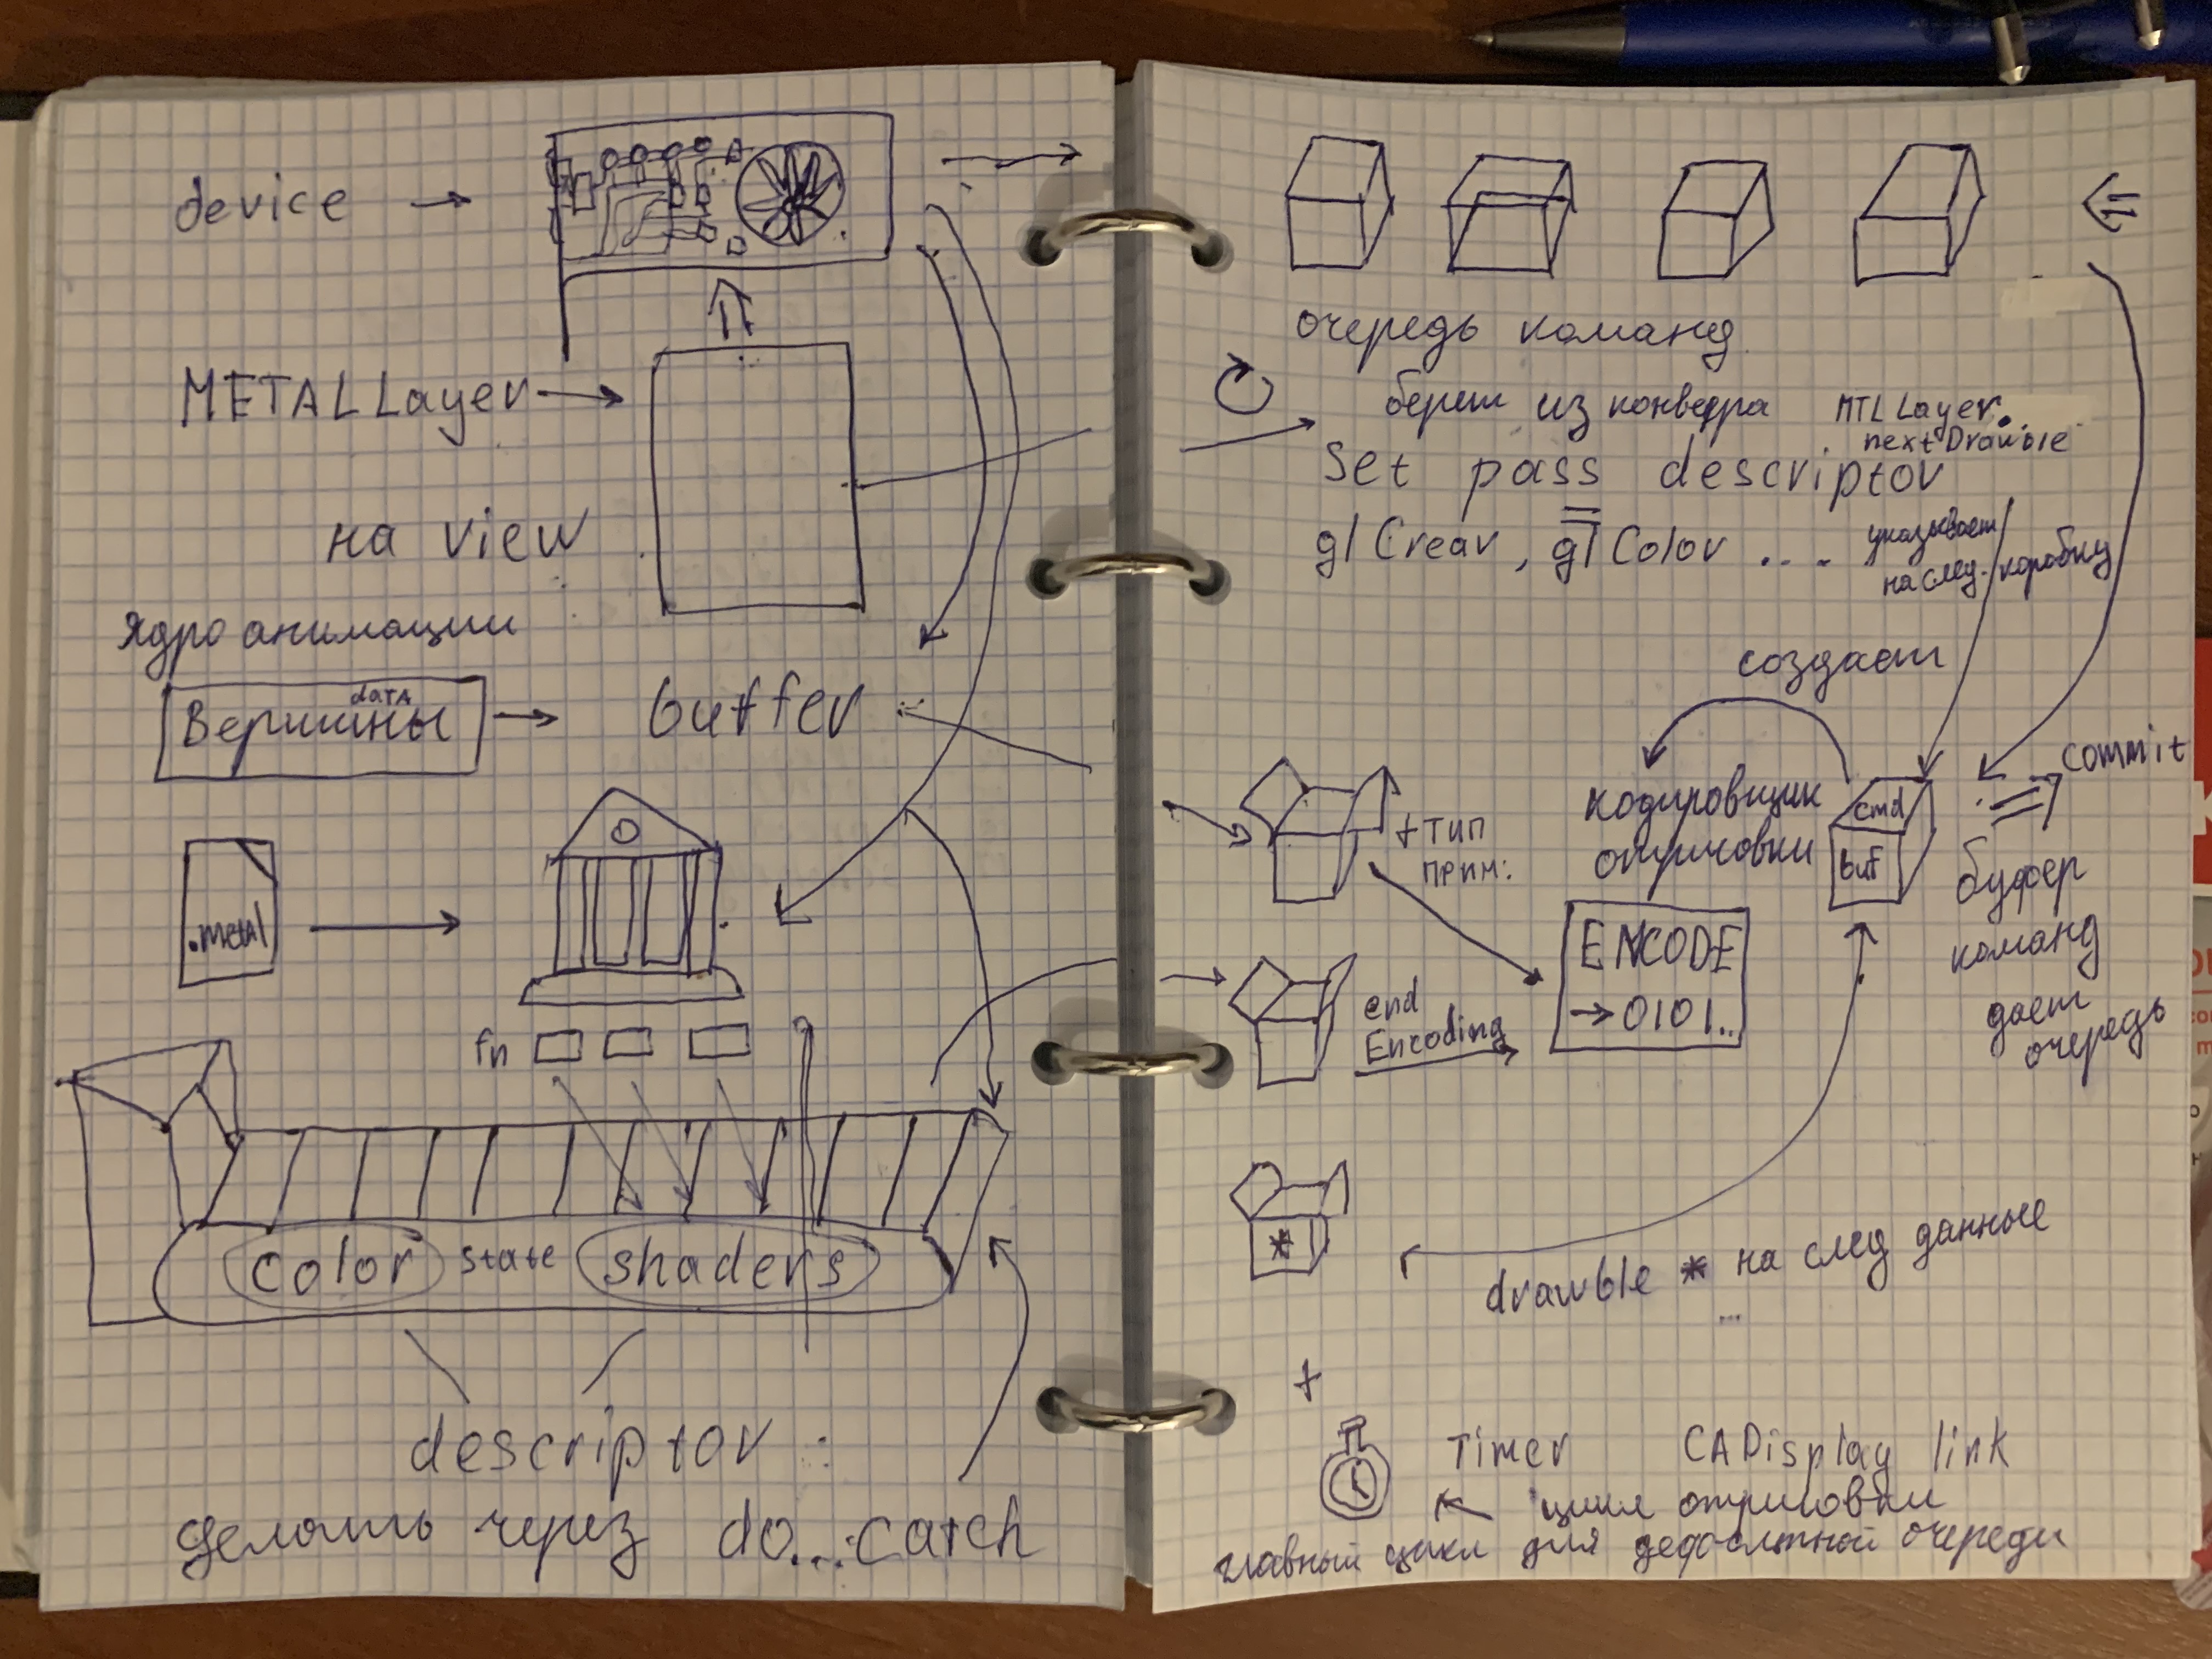 device →
METAL Layer →
на view
ядро анимации
Вершины data → buffer
.metal
fn
color state shaders
descriptor :
делать через do...catch
очередь команд
берет из конвера MTL Layer.
nextDrawble
Set pass descriptor
glCrear, glColor ....
указывает
на след. коробку
создает
commit
кодировщик
отрисовки
cmd
buf
+ тип
прим:
буфер
команд
дает
очередь
ENCODE
→ 0101..
end
Encoding
*
drawble * на след данные
...
+
Timer CADisplay link
цикл отрисовки
главный цикл для дефолтной очереди